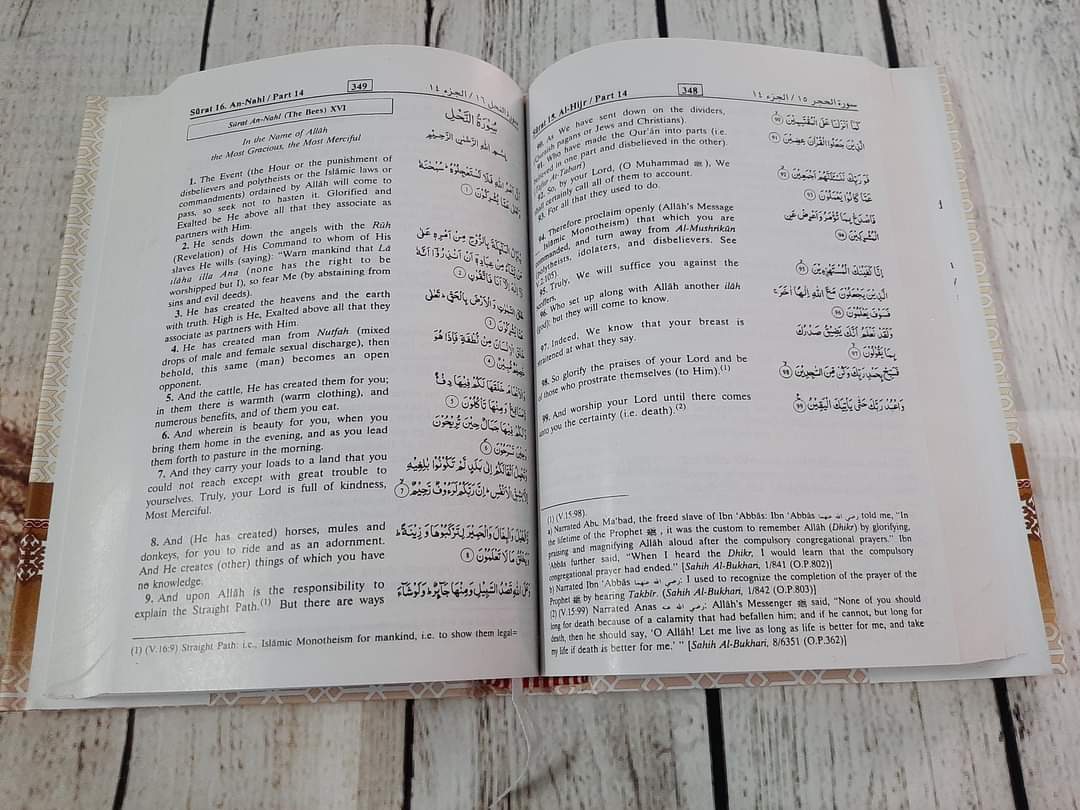 Sûrat 15. Al-Hijr / Part 14
348
سورة الحجر ١٥ / الجزء ١٤
90. As We have sent down on the dividers,
(Quraish pagans or Jews and Christians).
91. Who have made the Qur'ân into parts (i.e.
believed in one part and disbelieved in the other).
(Tafsir At-Tabari)
92. So, by your Lord, (O Muhammad ﷺ), We
shall certainly call all of them to account.
93. For all that they used to do.
94. Therefore proclaim openly (Allâh's Message
Islâmic Monotheism) that which you are
commanded, and turn away from Al-Mushrikûn
polytheists, idolaters, and disbelievers. See
V.2:105).
95. Truly, We will suffice you against the
scoffers,
96. Who set up along with Allâh another ilâh
(god); but they will come to know.
97. Indeed, We know that your breast is
straitened at what they say.
98. So glorify the praises of your Lord and be
of those who prostrate themselves (to Him).(1)
99. And worship your Lord until there comes
unto you the certainty (i.e. death).(2)
كَمَآ أَنزَلْنَا عَلَى الْمُقْتَسِمِينَ ٩٠
الَّذِينَ جَعَلُوا الْقُرْآنَ عِضِينَ ٩١
فَوَرَبِّكَ لَنَسْئَلَنَّهُمْ أَجْمَعِينَ ٩٢
عَمَّا كَانُوا يَعْمَلُونَ ٩٣
فَاصْدَعْ بِمَا تُؤْمَرُ وَأَعْرِضْ عَنِ
الْمُشْرِكِينَ ٩٤
إِنَّا كَفَيْنَاكَ الْمُسْتَهْزِئِينَ ٩٥
الَّذِينَ يَجْعَلُونَ مَعَ اللَّهِ إِلَٰهًا آخَرَ
فَسَوْفَ يَعْلَمُونَ ٩٦
وَلَقَدْ نَعْلَمُ أَنَّكَ يَضِيقُ صَدْرُكَ
بِمَا يَقُولُونَ ٩٧
فَسَبِّحْ بِحَمْدِ رَبِّكَ وَكُن مِّنَ السَّاجِدِينَ ٩٨
وَاعْبُدْ رَبَّكَ حَتَّىٰ يَأْتِيَكَ الْيَقِينُ ٩٩
(1) (V.15:98).
a) Narrated Abu Ma'bad, the freed slave of Ibn 'Abbâs: Ibn 'Abbâs رضي الله عنهما told me, "In
the lifetime of the Prophet ﷺ, it was the custom to remember Allâh (Dhikr) by glorifying,
praising and magnifying Allâh aloud after the compulsory congregational prayers." Ibn
'Abbâs further said, "When I heard the Dhikr, I would learn that the compulsory
congregational prayer had ended." [Sahih Al-Bukhari, 1/841 (O.P.802)]
b) Narrated Ibn 'Abbâs رضي الله عنهما: I used to recognize the completion of the prayer of the
Prophet ﷺ by hearing Takbîr. (Sahih Al-Bukhari, 1/842 (O.P.803)]
(2) (V.15:99) Narrated Anas رضي الله عنه: Allâh's Messenger ﷺ said, "None of you should
long for death because of a calamity that had befallen him; and if he cannot, but long for
death, then he should say, 'O Allâh! Let me live as long as life is better for me, and take
my life if death is better for me.' " [Sahih Al-Bukhari, 8/6351 (O.P.362)]
Sûrat 16. An-Nahl / Part 14
349
سورة النحل ١٦ / الجزء ١٤
Sûrat An-Nahl (The Bees) XVI
In the Name of Allâh
the Most Gracious, the Most Merciful
1. The Event (the Hour or the punishment of
disbelievers and polytheists or the Islâmic laws or
commandments) ordained by Allâh will come to
pass, so seek not to hasten it. Glorified and
Exalted be He above all that they associate as
partners with Him.
2. He sends down the angels with the Rûh
(Revelation) of His Command to whom of His
slaves He wills (saying): "Warn mankind that Lâ
ilâha illa Ana (none has the right to be
worshipped but I), so fear Me (by abstaining from
sins and evil deeds).
3. He has created the heavens and the earth
with truth. High is He, Exalted above all that they
associate as partners with Him.
4. He has created man from Nutfah (mixed
drops of male and female sexual discharge), then
behold, this same (man) becomes an open
opponent.
5. And the cattle, He has created them for you;
in them there is warmth (warm clothing), and
numerous benefits, and of them you eat.
6. And wherein is beauty for you, when you
bring them home in the evening, and as you lead
them forth to pasture in the morning.
7. And they carry your loads to a land that you
could not reach except with great trouble to
yourselves. Truly, your Lord is full of kindness,
Most Merciful.
8. And (He has created) horses, mules and
donkeys, for you to ride and as an adornment.
And He creates (other) things of which you have
no knowledge.
9. And upon Allâh is the responsibility to
explain the Straight Path.(1) But there are ways
سُورَةُ النَّحْلِ
بِسْمِ اللَّهِ الرَّحْمَٰنِ الرَّحِيمِ
أَمْرُ اللَّهِ فَلَا تَسْتَعْجِلُوهُ سُبْحَانَهُ
وَتَعَالَىٰ عَمَّا يُشْرِكُونَ ١
يُنَزِّلُ الْمَلَائِكَةَ بِالرُّوحِ مِنْ أَمْرِهِ عَلَىٰ
مَن يَشَاءُ مِنْ عِبَادِهِ أَنْ أَنذِرُوا أَنَّهُ
لَا إِلَٰهَ إِلَّا أَنَا فَاتَّقُونِ ٢
خَلَقَ السَّمَاوَاتِ وَالْأَرْضَ بِالْحَقِّ تَعَالَىٰ
عَمَّا يُشْرِكُونَ ٣
خَلَقَ الْإِنسَانَ مِن نُّطْفَةٍ فَإِذَا هُوَ
خَصِيمٌ مُّبِينٌ ٤
وَالْأَنْعَامَ خَلَقَهَا لَكُمْ فِيهَا دِفْءٌ
وَمَنَافِعُ وَمِنْهَا تَأْكُلُونَ ٥
وَلَكُمْ فِيهَا جَمَالٌ حِينَ تُرِيحُونَ
وَحِينَ تَسْرَحُونَ ٦
وَتَحْمِلُ أَثْقَالَكُمْ إِلَىٰ بَلَدٍ لَّمْ تَكُونُوا بَالِغِيهِ
إِلَّا بِشِقِّ الْأَنفُسِ إِنَّ رَبَّكُمْ لَرَءُوفٌ رَّحِيمٌ ٧
وَالْخَيْلَ وَالْبِغَالَ وَالْحَمِيرَ لِتَرْكَبُوهَا وَزِينَةً
وَيَخْلُقُ مَا لَا تَعْلَمُونَ ٨
وَعَلَى اللَّهِ قَصْدُ السَّبِيلِ وَمِنْهَا جَائِرٌ وَلَوْ شَاءَ
(1) (V.16:9) Straight Path: i.e., Islâmic Monotheism for mankind, i.e. to show them legal=